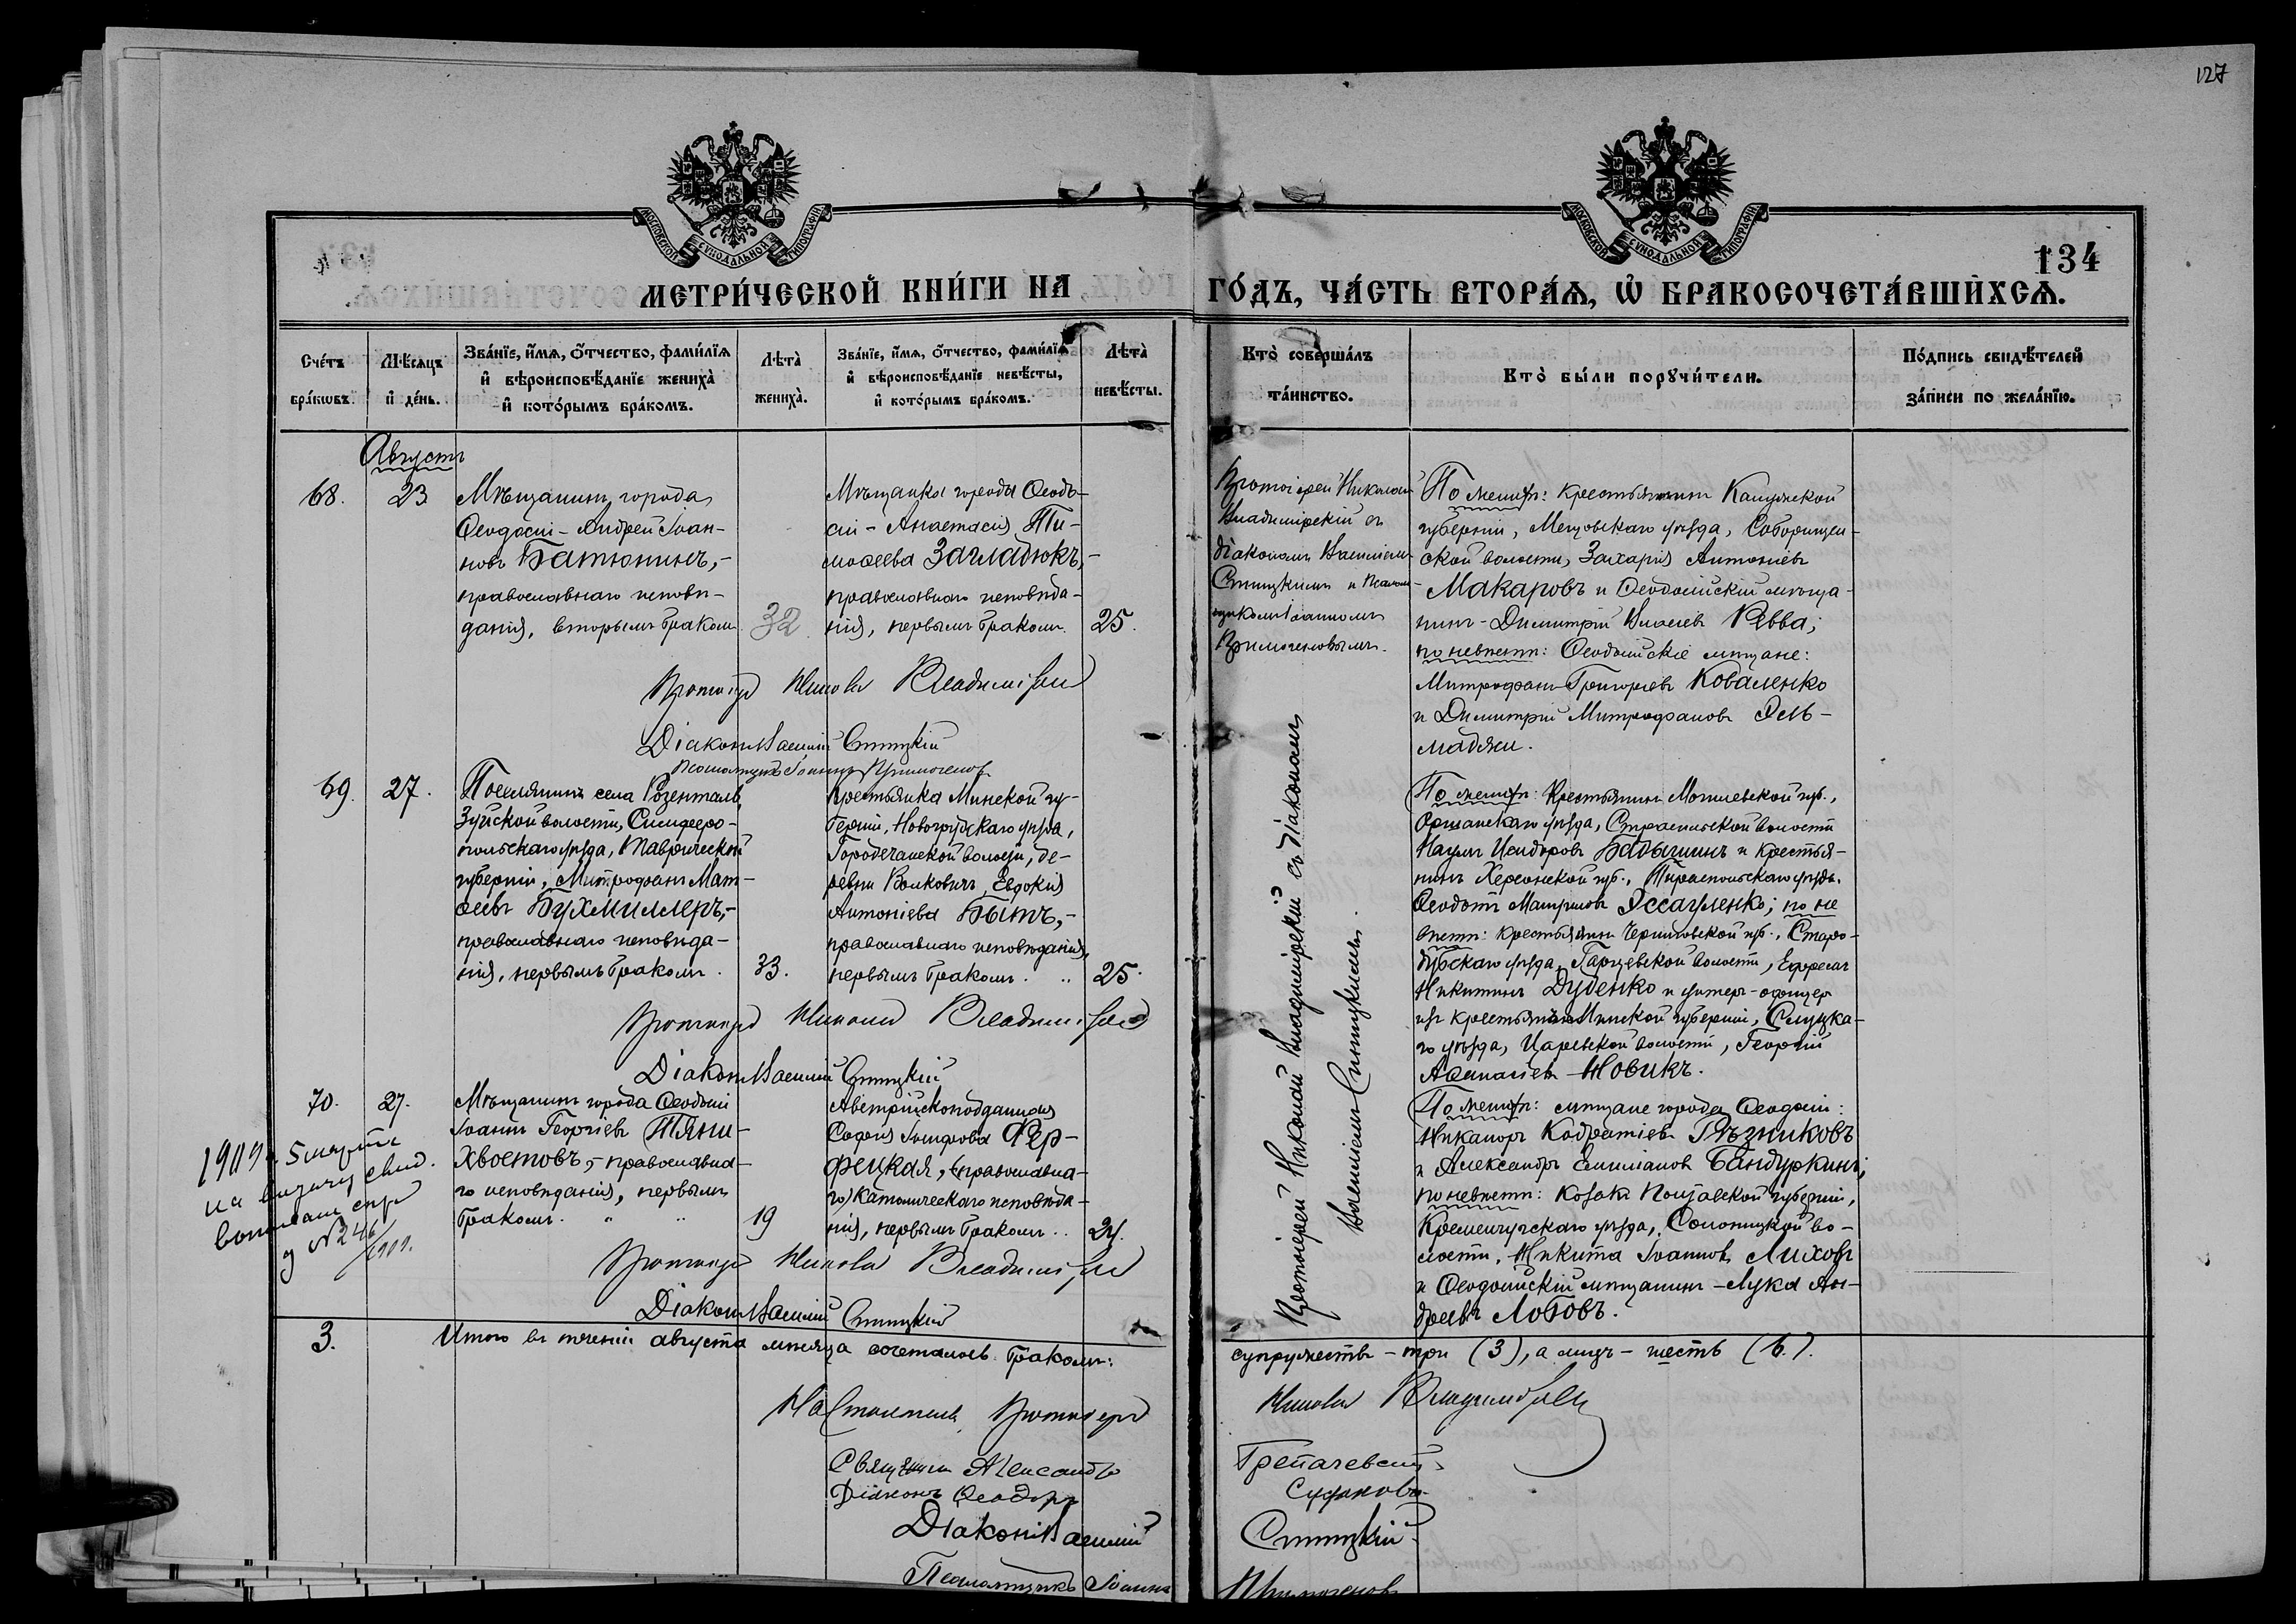 127
МОСКОВСКОЙ СѴНОДАЛЬНОЙ ТИПОГРАФІИ
МОСКОВСКОЙ СѴНОДАЛЬНОЙ ТИПОГРАФІИ
134
МЕТРИ́ЧЕСКОЙ КНИ́ГИ НА ГО́ДЪ, ЧА́СТЬ ВТОРА́Ѧ, Ѽ БРАКОСОЧЕТА́ВШИХСѦ.
Сче́тъ бра́кѡвъ.
Мѣ́сѧцъ и҆ де́нь.
Зва́нїе, и҆́мѧ, ѻ҆́тчество, фами́лїѧ
и҆ вѣроисповѣ́данїе жениха̀
и҆ кото́рымъ бра́комъ.
Лѣта̀ жениха̀.
Зва́нїе, и҆́мѧ, ѻ҆́тчество, фами́лїѧ
и҆ вѣроисповѣ́данїе невѣ́сты,
и҆ кото́рымъ бра́комъ.
Лѣта̀ невѣ́сты.
Кто̀ соверша́лъ та́инство.
Кто̀ бы́ли порꙋчи́тели.
По́дпись свидѣ́телей за́писи по жела́нїю.
Августъ
68.
23
Мѣщанинъ города
Ѳеодосіи – Андрей Іоан-
новъ Батюнинъ,-
православнаго исповѣ-
данія, вторымъ бракомъ
32
Мѣщанка города Ѳеодо-
сіи – Анастасія Ти-
моѳеева Загладюкъ,-
православнаго исповѣда-
нія, первымъ бракомъ.
25.
Протоіерей Николай
Владимірскій съ
діакономъ Василіемъ
Стицкимъ и Псалом-
щикомъ Іоанномъ
По женихѣ: крестьянинъ Калужской
губерніи, Мещовскаго уѣзда,
ской волости, Захарія Антоніевъ
Макаровъ и Ѳеодосійскій мѣща-
нинъ – Димитрій Ревва;
по невѣстѣ: Ѳеодосійскіе мѣщане:
Митрофанъ Григоріевъ Коваленко
и Димитрій Митрофановъ Эль-
маджи.
Протоіерей Николай Владимірскій
Діаконъ Василій Стицкій
Псаломщикъ Іоаннъ
69.
27.
Поселянинъ села Розенталь,
Зуйской волости, Симферо-
польскаго уѣзда, Таврической
губерніи, Митрофанъ Мат-
ѳеевъ Бухмиллеръ,-
православнаго исповѣда-
нія, первымъ бракомъ.
33.
Крестьянка Минской гу-
берніи, Новогрудскаго уѣзда,
Городечанской волости, де-
ревни Волковичъ, Евдокія
Антоніева Бытъ,-
православнаго исповѣданія,
первымъ бракомъ.
25.
Протоіерей Николай Владимірскій съ діакономъ
Василіемъ Стицкимъ.
По женихѣ: Крестьянинъ Могилевской губ.,
Оршанскаго уѣзда, волости
Наумъ Исидоровъ и крестья-
нинъ Херсонской губ., Тираспольскаго уѣзда.
Ѳеодотъ Эссауленко; по не
вѣстѣ: крестьянинъ Черниговской губ., Старо-
дубскаго уѣзда, волости, Ефремъ
Никитинъ Дуденко и унтеръ-офицеръ
изъ крестьянъ Минской губерніи, Слуцка-
го уѣзда, Царевской волости, Георгій
Аѳанасіевъ Новикъ.
Протоіерей Николай Владимірскій
Діаконъ Василій Стицкій
70.
27.
Мѣщанинъ города Ѳеодосіи
Іоаннъ Георгіевъ Тяни-
хвостовъ,- православна-
го исповѣданія, первымъ
бракомъ.
19
Австрійскоподданная
Софія Іосифова Фер-
фецкая, (православна-
го) католическаго исповѣда-
нія, первымъ бракомъ.
21.
По женихѣ: мѣщане города Ѳеодосіи:
Никаноръ Кодратіевъ
и Александръ Емиліановъ Бандуркинъ;
по невѣстѣ: козакъ Полтавской губерніи,
Кременчугскаго уѣзда, во-
лости, Никита Іоанновъ Лиховъ
и Ѳеодосійскій мѣщанинъ – Лука Ан-
дреевъ Лобовъ.
1909 г. 5 марта
на выдачу свид.
№246/1909.
Протоіерей Николай Владимірскій
Діаконъ Василій Стицкій
3.
Итого въ теченіи августа мѣсяца сочеталось бракомъ: супружествъ – три (3), а лицъ – шесть (6.).
Настоятель, Протоіерей Николай Владимірскій
Священникъ Александръ
Діаконъ Ѳеодоръ
Діаконъ Василій Стицкій
Псаломщикъ Іоаннъ